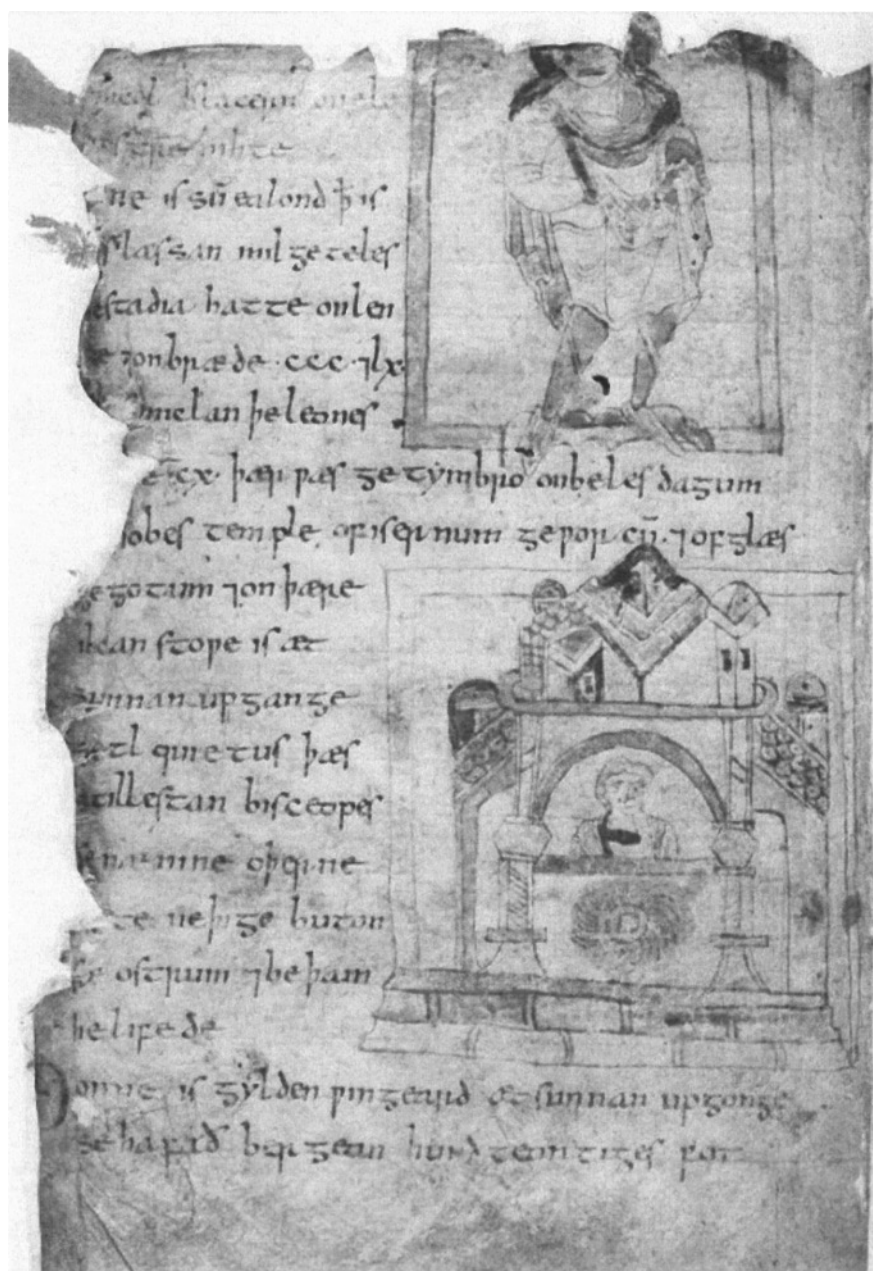 ne is sū ealond ꝥ is
læssan mil geteles
stadia hatte onlen
ge ⁊onbræde ·ccc·⁊lx·
miclan þe leones
cx· þær ƿæs getymbrō onbeles dagum
iobes temple of isernum geƿor cū· ⁊of glæs
gegotam ⁊on þære
ilcan stoƿe is æt
sunnan upgange
setl quietus þæs
stillestan bisceopes
se nænine oþerne
ne þige buton
ostrum ⁊be þam
he lifede
Donne is gylden ƿingeard æt sunnan upgonge
se hafað bergean hund teontiges fot